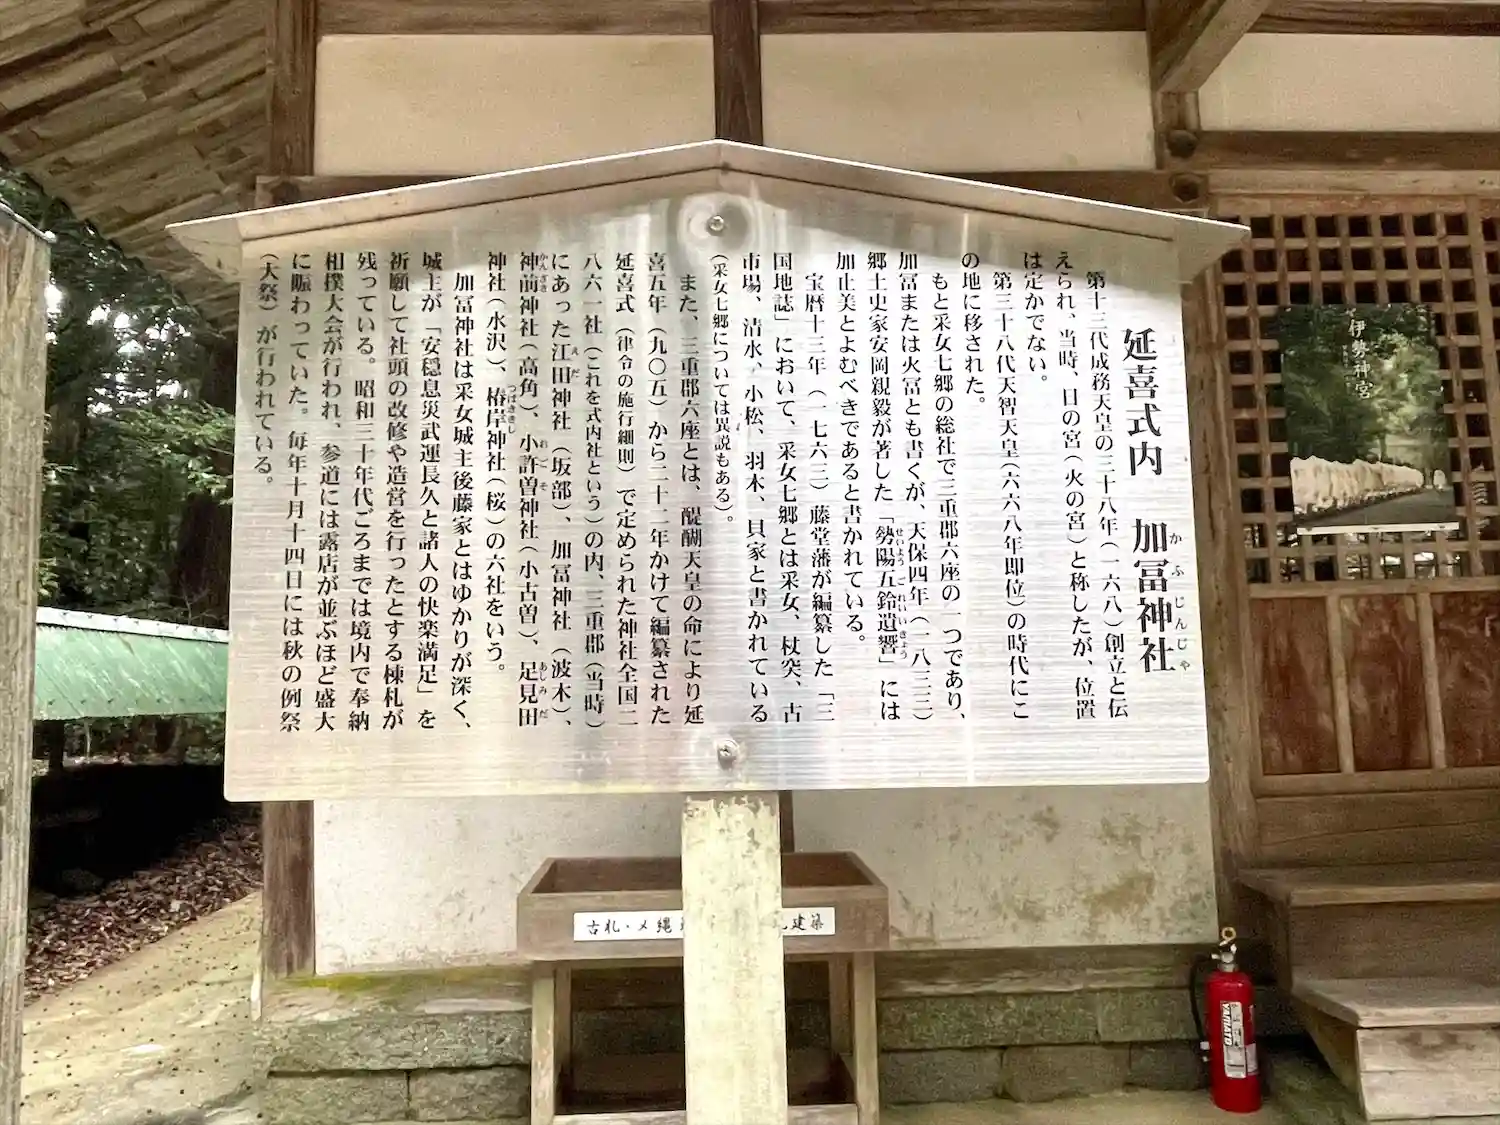 延喜式内　加冨神社
かふじんじゃ
第十三代成務天皇の三十八年（一六八）創立と伝
えられ、当時、日の宮（火の宮）と称したが、位置
は定かでない。
第三十八代天智天皇（六六八年即位）の時代にこ
の地に移された。
もと采女七郷の総社で三重郡六座の一つであり、
加冨または火冨とも書くが、天保四年（一八三三）
郷土史家安岡親毅が著した「勢陽五鈴遺響」には
せいようごれいいきょう
加止美とよむべきであると書かれている。
宝暦十三年（一七六三）藤堂藩が編纂した「三
国地誌」において、采女七郷とは采女、杖突、古
市場、清水、小松、羽木、貝家と書かれている
（采女七郷については異説もある）。
また、三重郡六座とは、醍醐天皇の命により延
喜五年（九〇五）から二十二年かけて編纂された
延喜式（律令の施行細則）で定められた神社全国二
八六一社（これを式内社という）の内、三重郡（当時）
にあった江田神社（坂部）、加冨神社（波木）、
えだ
神前神社（高角）、小許曽神社（小古曽）、足見田
かんざき　おごそ　あしみだ
神社（水沢）、椿岸神社（桜）の六社をいう。
つばききし
加冨神社は采女城主後藤家とはゆかりが深く、
城主が「安穏息災武運長久と諸人の快楽満足」を
祈願して社頭の改修や造営を行ったとする棟札が
残っている。昭和三十年代ごろまでは境内で奉納
相撲大会が行われ、参道には露店が並ぶほど盛大
に賑わっていた。毎年十月十四日には秋の例祭
（大祭）が行われている。
伊勢神宮
古札・〆縄
建築
YAMATO